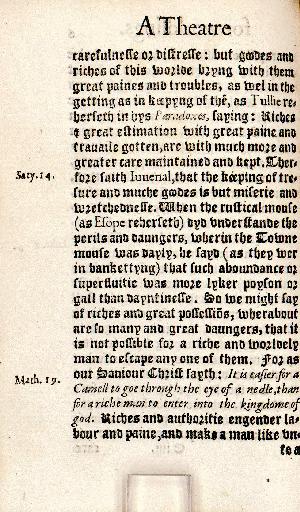 A Theatre
carefulnesse or distresse: but goodes and
riches of this worlde bryng with them
great paines and troubles, as wel in the
getting as in kéepyng of thẽ, as Tullie re-
herseth in hys Paradoxes, saying: Riches
& great estimation with great paine and
trauaile gotten, are with much more and
greater care maintained and kept. Ther-
Saty. 14.
fore saith Iuuenal, that the kéeping of tre-
sure and muche goodes is but miserie and
wretchednesse. When the rusticall mouse
(as Esope reherseth) dyd vnderstande the
perils and daungers, wherin the Towne
mouse was dayly, he sayd (as they wer
in bankettyng) that such aboundance or
superfluitie was more lyker poyson or
gall than dayntinesse. So we might say
of riches and great possessiõs, wherabout
are so many and great daungers, that it
is not possible for a riche and worldely
man to escape any one of them. For as
Math. 19.
our Sauiour Christ sayth: It is easier for a
Camell to goe through the eye of a nedle, than
for a riche man to enter into the kingdome of
god. Riches and authoritie engender la-
bour and paine, and make a man like vn-
to a